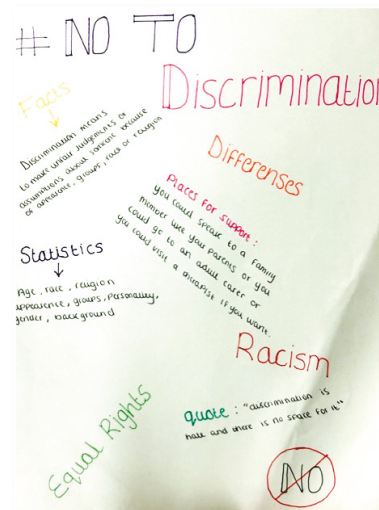 # NO TO
Discrimination
Facts
Discrimination means
to make unfair judgements or
assumptions about someone because
of appearence, groups, race or religion
Differenses
Places for support:
you could speak to a family
member like your parents or you
could go to an adult carer or
you could visit a therapist if you want.
Statistics
Age, race, religion
appearence, groups, personality,
gender, background
Racism
quote: "discrimination is
hate and there is no space for it"
Equal Rights
NO